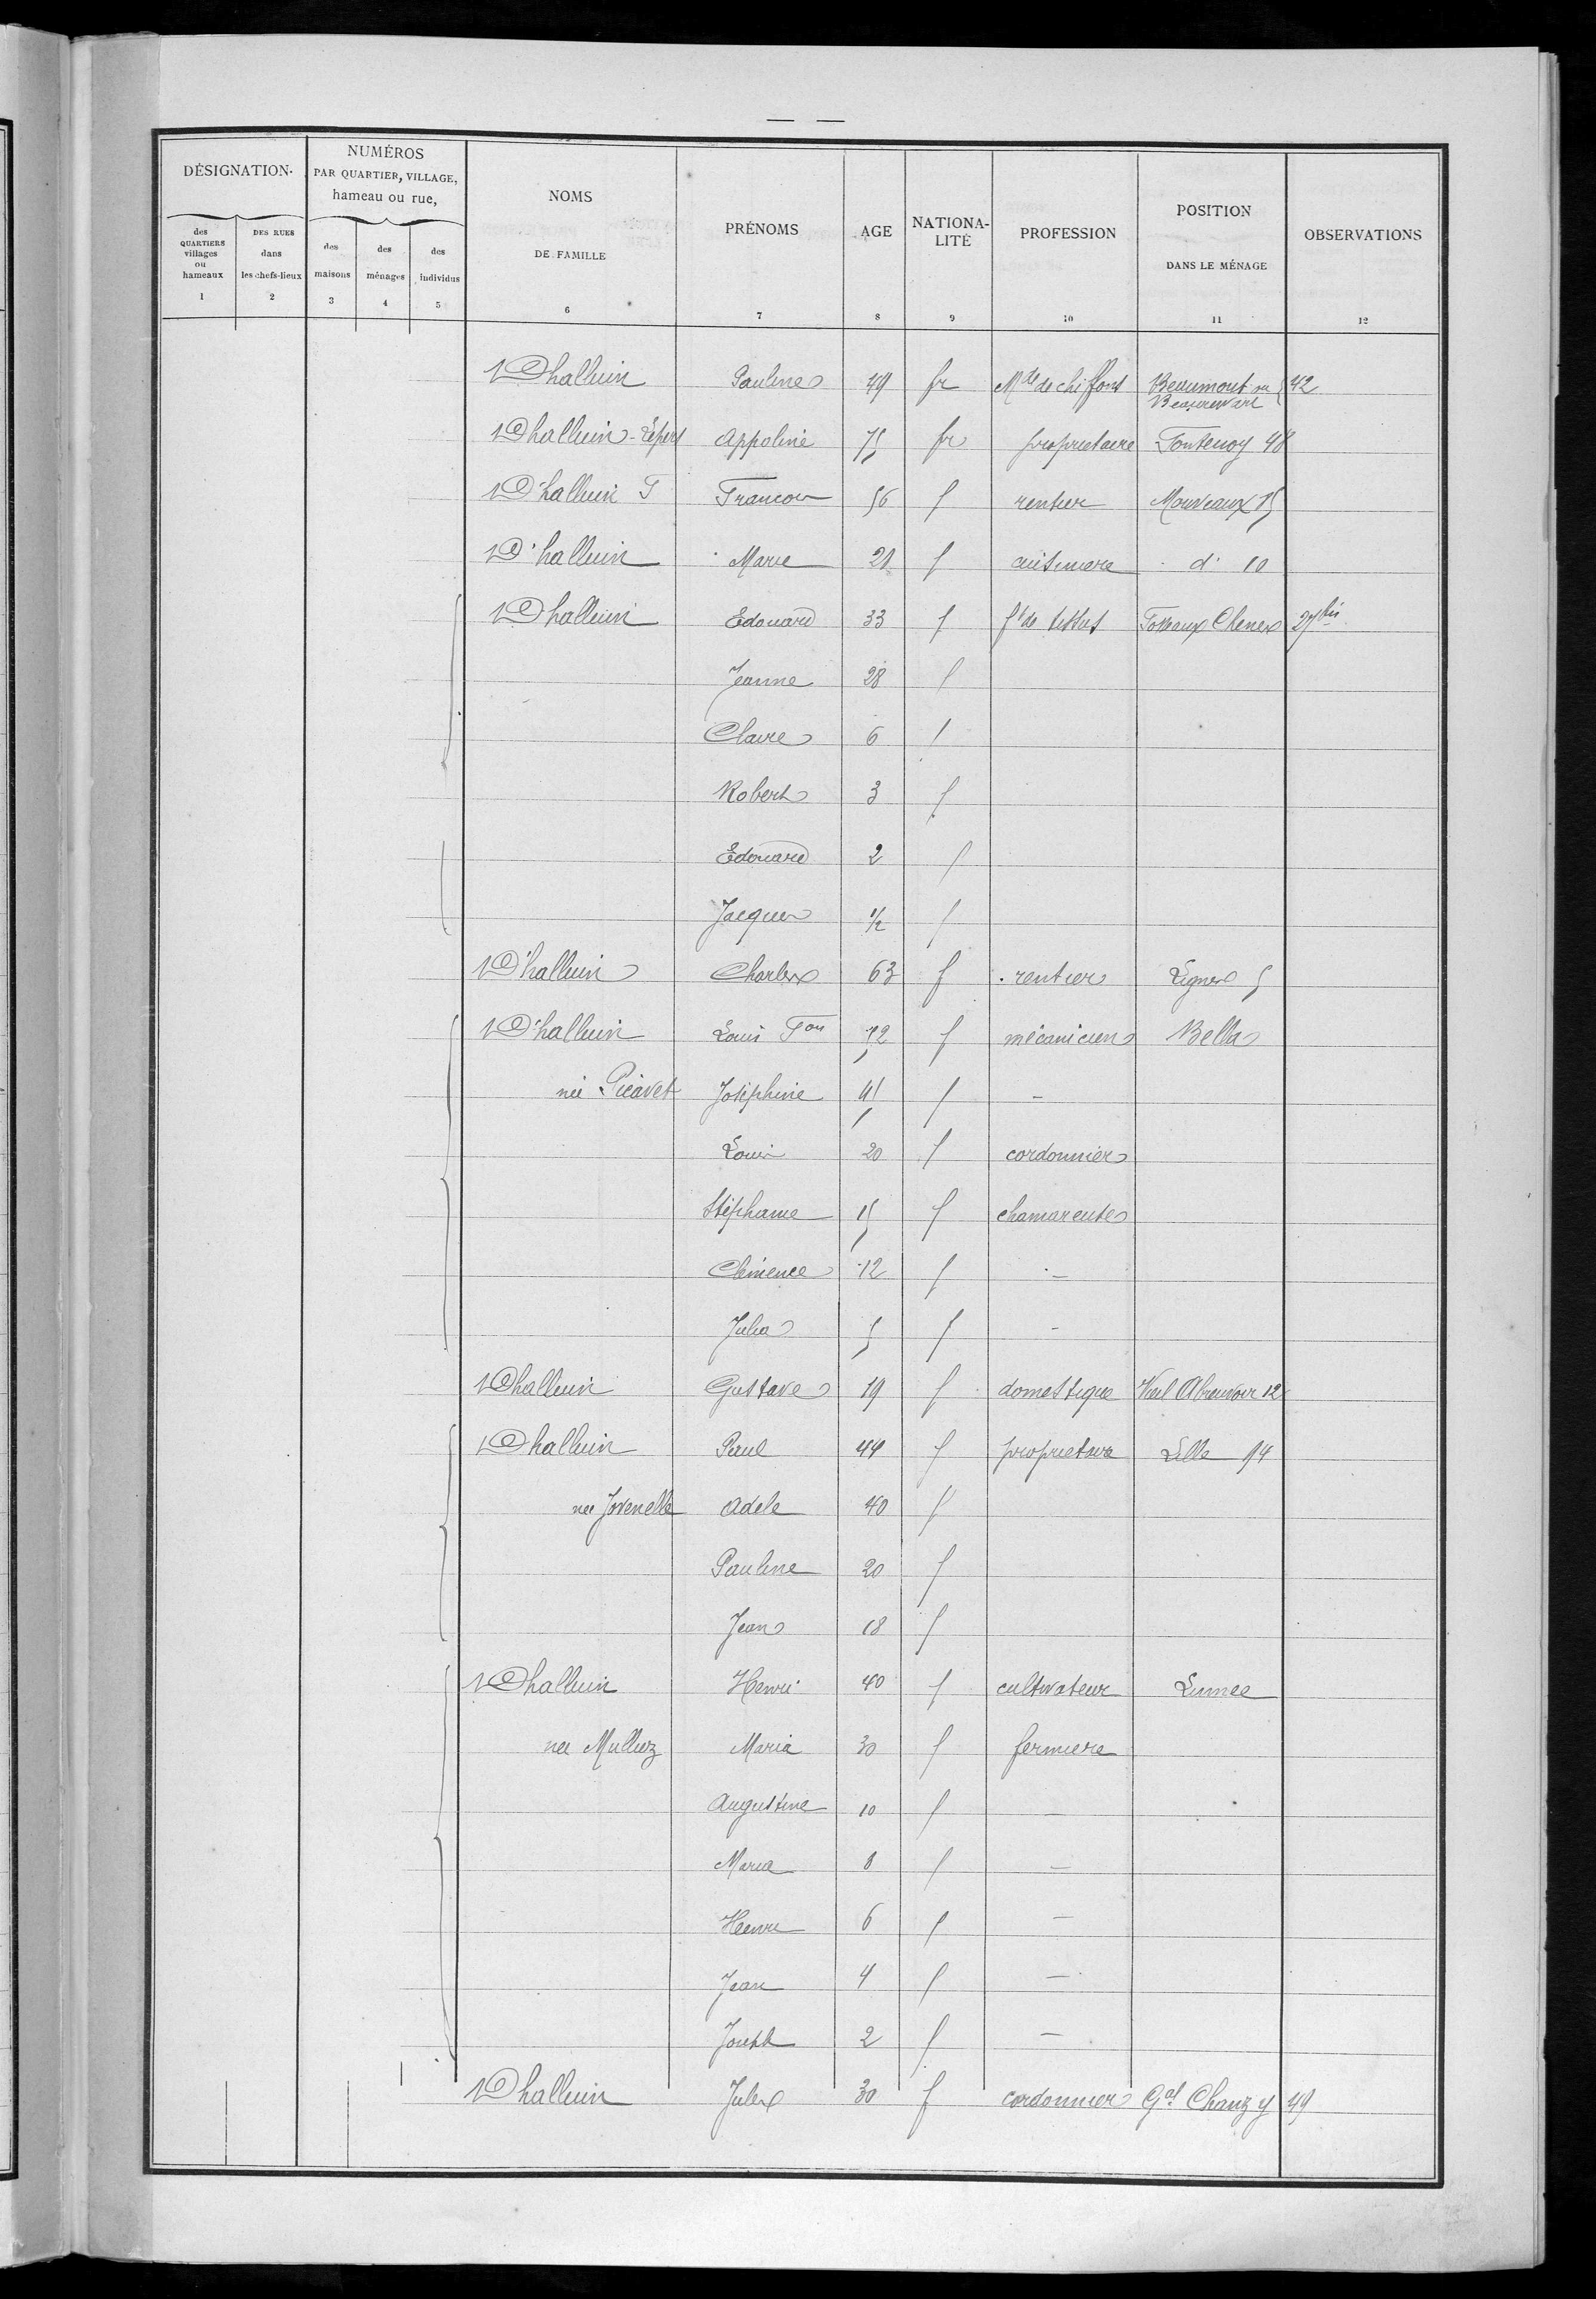 — —
DÉSIGNATION. NUMÉROS PAR QUARTIER, VILLAGE, hameau ou rue, NOMS DE FAMILLE PRÉNOMS AGE NATIONALITÉ PROFESSION POSITION DANS LE MÉNAGE OBSERVATIONS
des QUARTIERS villages ou hameaux DES RUES dans les chefs-lieux des maisons des ménages des individus
1 2 3 4 5 6 7 8 9 10 11 12
Dhalluin Pauline 49 fr Mde de chiffons Beaumont 42
Dhalluin-Lepers Appoline 75 fr proprietaire Fontenoy 48
D'halluin F Francois 56 f rentier Mouveaux 15
D'halluin Marie 21 f cuisiniere d° 10
Dhalluin Edouard 33 f ft de tissus Fosseaux Chenes 27 bis
Jeanne 28 f
Claire 6 f
Robert 3 f
Edouard 2 f
Jacques 1/2 f
D'halluin Charles 63 f rentier Lignes 5
D'halluin Louis Fois 52 f mécanicien Bella
née Picavet Joséphine 41 f —
Louis 20 f cordonnier
Stéphanie 15 f
Clémence 12 f —
Julia 5 f —
Dhalluin Gustave 19 f domestique Vieil Abreuvoir 12
Dhalluin Paul 44 f proprietaire Lille 94
née Jovenelle Adele 40 f
Pauline 20 f
Jean 18 f
Dhalluin Henri 40 f cultivateur
née Mulliez Maria 30 f fermiere
Augustine 10 f —
Maria 8 f —
Henri 6 f —
Jean 4 f —
Joseph 2 f —
Dhalluin Jules 30 f cordonnier Gal Chanzy 49